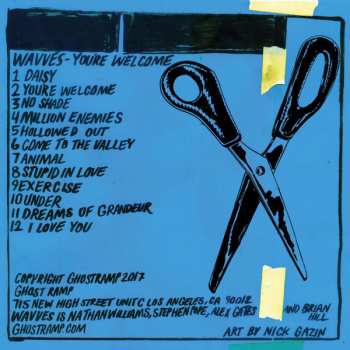 WAVVES-YOURE WELCOME
1 DAISY
2 YOURE WELCOME
3 NO SHADE
4 MILLION ENEMIES
5 HOLLOWED OUT
6 COME TO THE VALLEY
7 ANIMAL
8 STUPID IN LOVE
9 EXERCISE
10 UNDER
11 DREAMS OF GRANDEUR
12 I LOVE YOU
COPYRIGHT GHOSTRAMP 2017
GHOST RAMP
715 NEW HIGH STREET UNIT C LOS ANGELES, CA 90012
WAVVES IS NATHAN WILLIAMS, STEPHEN POPE, ALEX GATES AND BRIAN HILL
GHOSTRAMP.COM
ART BY NICK GAZIN